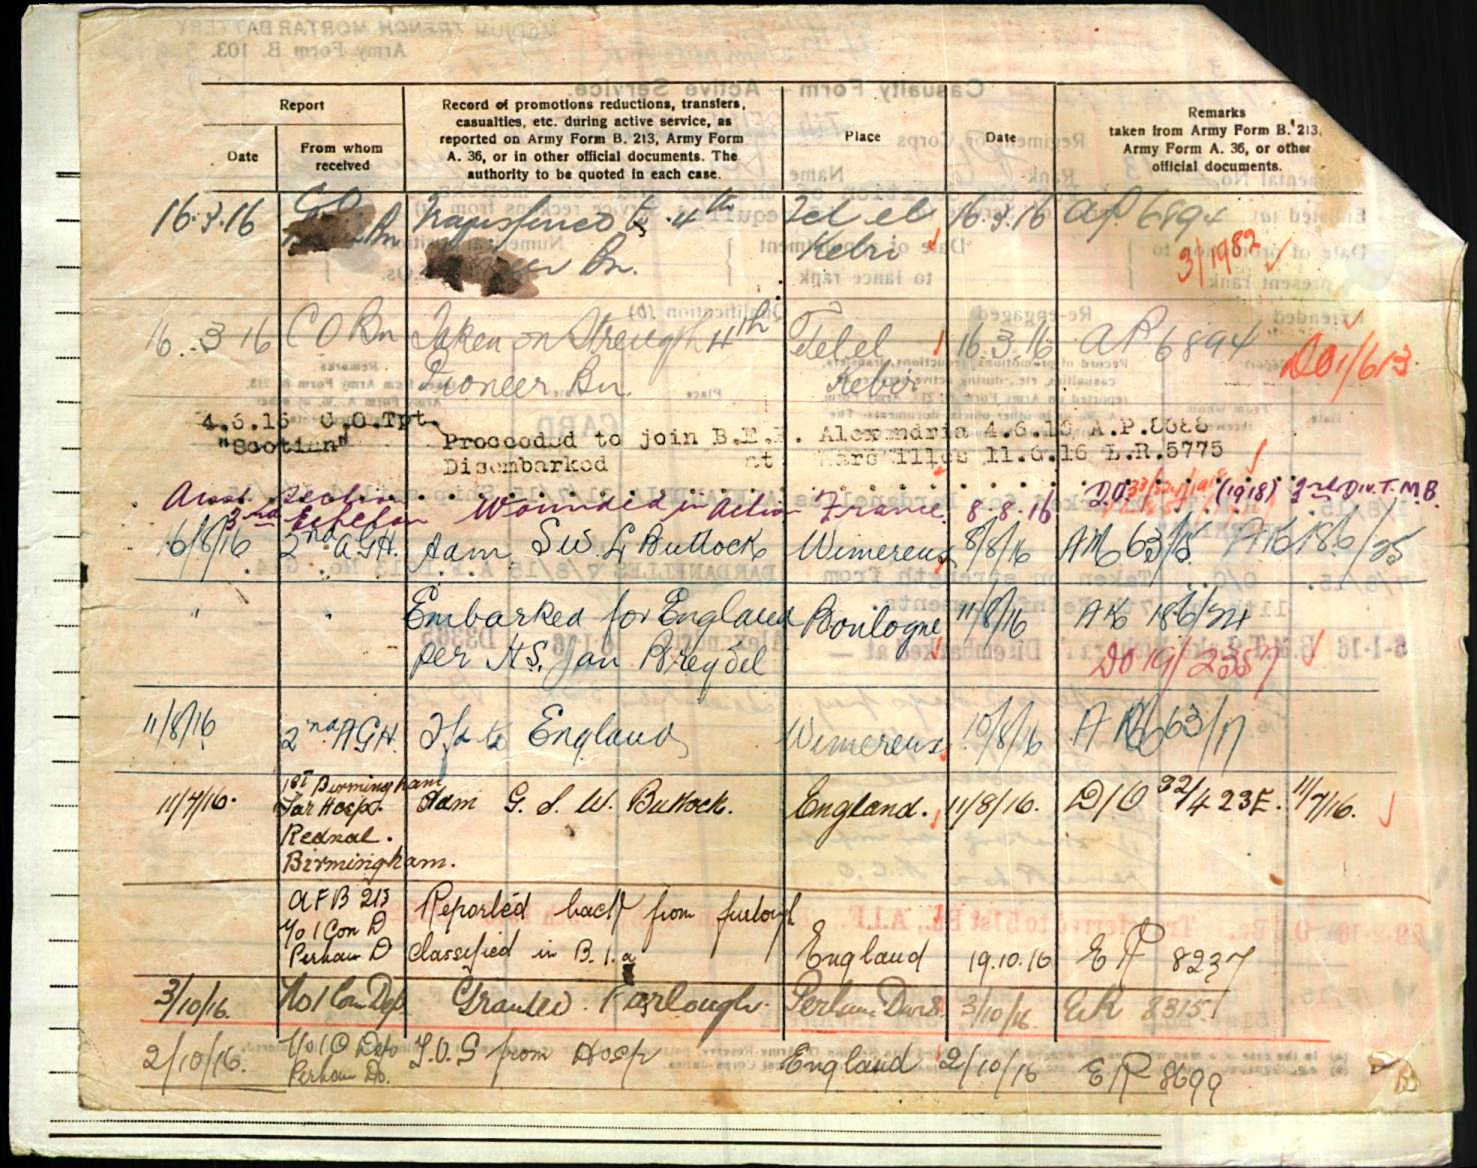 Report
Record of promotions reductions, transfers,
casualties, etc. during active service, as
reported on Army Form B. 213, Army Form
A. 36, or in other official documents. The
authority to be quoted in each case.
Place
Date
Remarks
taken from Army Form B. 213,
Army Form A. 36, or other
official documents.
Date
From whom
received
16.3.16 CO Bn Transferred to 4th Tel el 16.3.16 AP 6894
Bn. Kebir 3/1982
16.3.16 CO Bn Taken on Strength 4th Tel el 16.3.16 AP 6894
Pioneer Bn Kebir DO 1/613
4.6.16 C.O.Tpt. Proceeded to join B.E.F. Alexandria 4.6.16 A.P.8688
"Scotian" Disembarked at Marseilles 11.6.16 L.R.5775
Aust Section D.O. (1918) 2nd Div. T.M.B.
3rd Echelon Wounded in Action France. 8.8.16
2nd A.G.H. Adm S.W. L Buttock Wimereux 8/8/16 AK 186/25
" " Embarked for England Boulogne 11/8/16 AK 186/24
per H.S. Jan Breydel DO 19/2357
11/8/16 2nd A.G.H. Tfd to England Wimereux 10/8/16
11/7/16. 1st Birmingham Adm G.S.W. Buttock. England. 11/8/16. D/O 32/423E. 11/7/16.
War Hosp.
Rednal.
Birmingham.
AFB 213 Reported back from furlough
No 1 Con D
Perham D Classified in B.1.a England 19.10.16 ER 8237
3/10/16. No 1 Com Dep Granted Furlough. Perham Downs. 3/10/16 ER 8315
2/10/16. No 1 C Depo T.O.S from Hosp England 2/10/16 ER 8699
Perham Do.